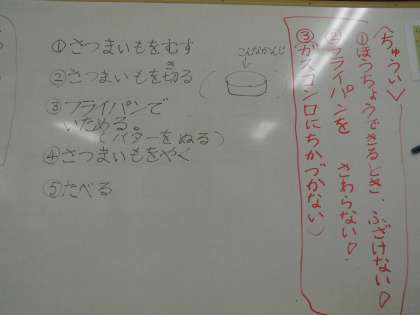 ①さつまいもをむす
②さつまいもを切る
き
こんなかんじ
③フライパンで
いためる
(バターをぬる)
④さつまいもをやく
⑤たべる
<ちゅうい>
①ほうちょうできるとき、ふざけない!
②フライパンを さわらない!
③ガスコンロにちかづかない